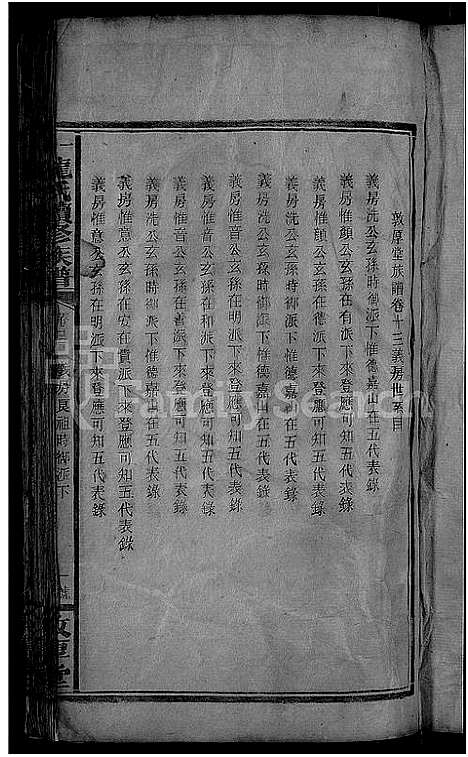 敦厚堂族譜卷十三義房世系目
義房洗公玄孫時御派下惟德嘉山在五代表錄
義房惟顏公玄孫在有派下來登應可知五代表錄
義房惟顏公玄孫在派下來登應可知五代表錄
義房洗公玄孫時御派下惟德嘉山在五代表錄
義房洗公玄孫時御派下惟德嘉在五代表錄
義房惟音公玄孫在派下來登應可知五代表錄
義房惟音公玄孫在和派下來登應可知五代表錄
義房惟音公玄孫在善派下來登應可知五代表錄
義房洗公玄孫時御派下惟德嘉在五代表錄
義房惟意公玄孫在安在貴派下來登應可知五代表錄
義房惟意公玄孫在明派下來登應可知五代表錄
龍氏續修族譜
義房良祖時御派下
敦厚堂
FamilySearch